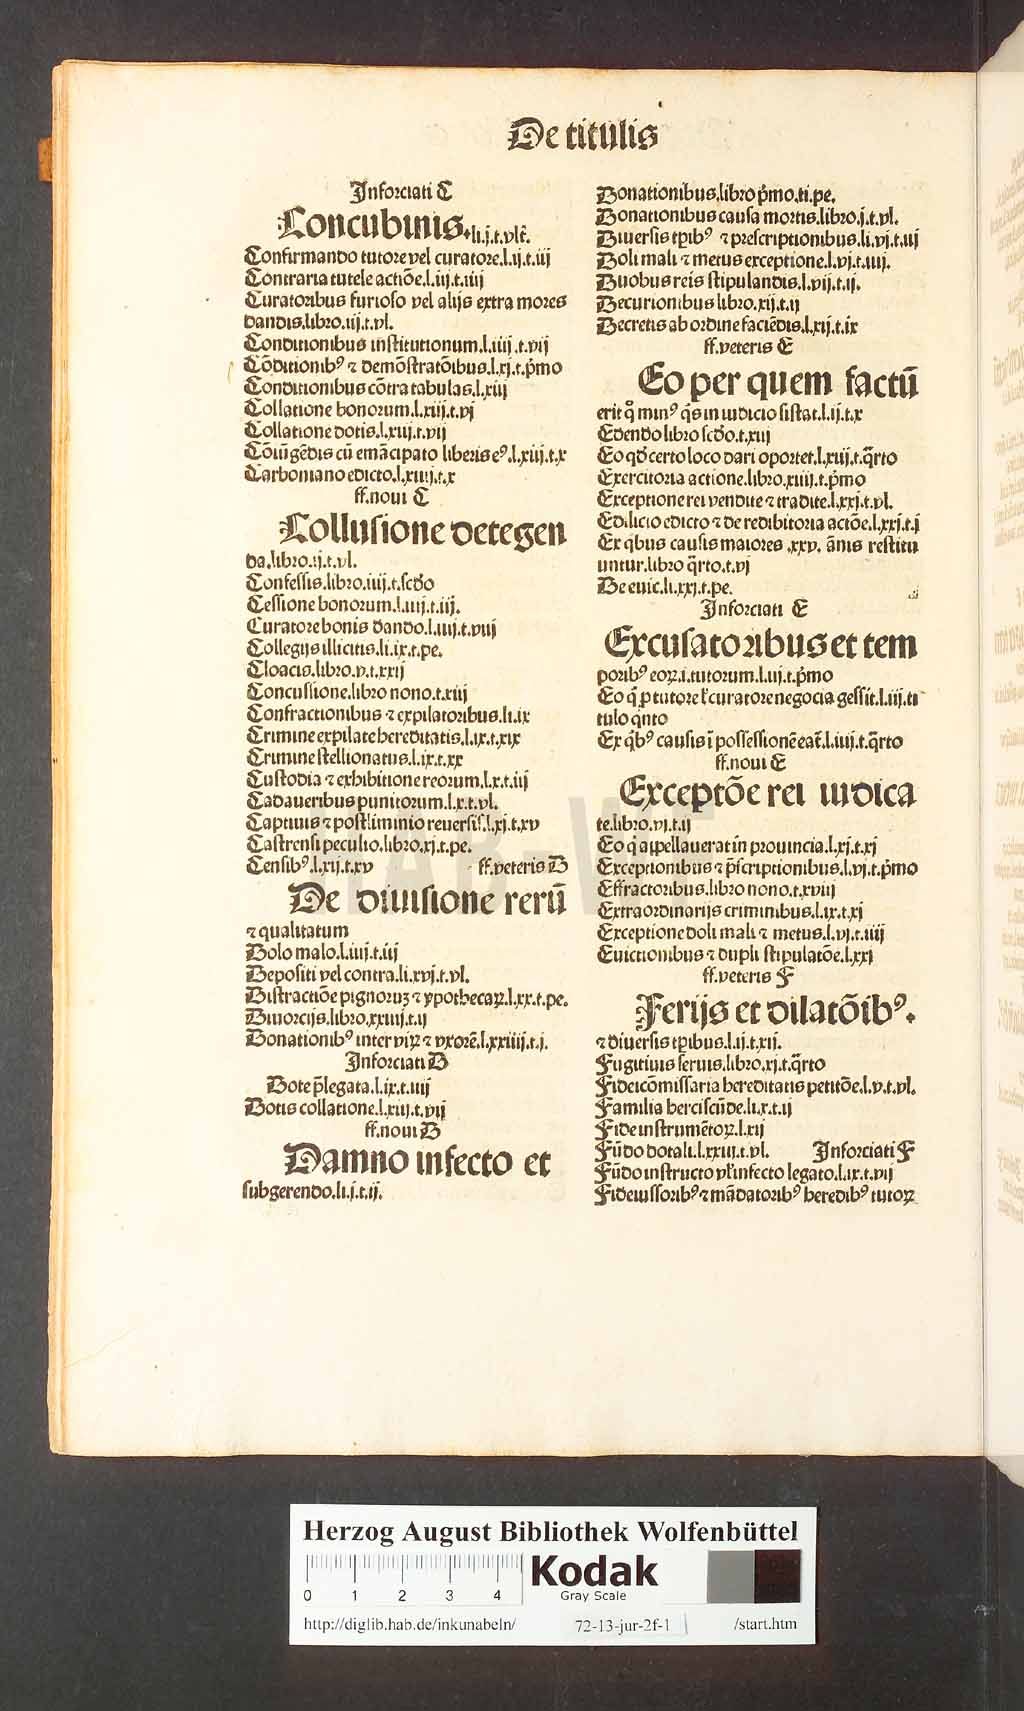 De titulis
Inforciati C
Concubinis.li.j.t.vlt̄.
Confirmando tutore vel curatore.l.ij.t.iij
Contraria tutele actiōe.l.iij.t.iiij
Curatoribus furioso vel alijs extra mores
dandis.libro.iij.t.vl.
Conditionibus institutionum.l.iiij.t.vij
Cōditionibꝰ ⁊ demōstratōibus.l.xj.t.p̄mo
Conditionibus cōtra tabulas.l.xiij
Collatione bonorum.l.xiij.t.vj
Collatione dotis.l.xiij.t.vij
Cōiūgēdis cū emācipato liberis eꝰ.l.xiij.t.x
Carboniano edicto.l.xiiij.t.x
ff.noui C
Collusione detegen
da.libro.ij.t.vl.
Confessis.libro.iiij.t.scd̄o
Cessione bonorum.l.iiij.t.iij.
Curatore bonis dando.l.iiij.t.viij
Collegijs illicitis.li.ix.t.pe.
Cloacis.libro.v.t.xxij
Concussione.libro nono.t.xiij
Confractionibus ⁊ expilatoribus.li.ix
Crimine expilate hereditatis.l.ix.t.xix
Crimine stellionatus.l.ix.t.xx
Custodia ⁊ exhibitione reorum.l.x.t.iij
Cadaueribus punitorum.l.x.t.vl.
Captiuis ⁊ postliminio reuersis.l.xj.t.xv
Castrensi peculio.libro.xj.t.pe.
Censibꝰ.l.xij.t.xv ff.veteris D
De diuisione rerū
⁊ qualitatum
Dolo malo.l.iiij.t.iij
Depositi vel contra.li.xvj.t.vl.
Distractiōe pignoruꝫ ⁊ ypothecaꝝ.l.xx.t.pe.
Diuorcijs.libro.xxiiij.t.ij
Donationibꝰ inter viꝝ ⁊ vxorē.l.xxiiij.t.j.
Inforciati D
Dote p̄legata.l.ix.t.iiij
Dotis collatione.l.xiij.t.vij
ff.noui D
Damno infecto et
subgerendo.li.j.t.ij.
Donationibus.libro p̄mo.ti.pe.
Donationibus causa mortis.libro.j.t.vl.
Diuersis tp̄ibꝰ ⁊ prescriptionibus.li.vj.t.iij
Doli mali ⁊ metus exceptione.l.vj.t.iiij.
Duobus reis stipulandis.l.vij.t.ij.
Decurionibus libro.xij.t.ij
Decretis ab ordine faciēdis.l.xij.t.ix
ff.veteris E
Eo per quem factū
erit q̄ minꝰ q̄s in iudicio sistat.l.ij.t.x
Edendo libro scd̄o.t.xiij
Eo qđ certo loco dari oportet.l.xiij.t.q̄rto
Exercitoria actione.libro.xiiij.t.p̄mo
Exceptione rei vendite ⁊ tradite.l.xxj.t.vl.
Edilicio edicto ⁊ de redibitoria actiōe.l.xxj.t.j
Ex q̄bus causis maiores .xxv. ānis restitu
untur.libro q̄rto.t.vj
De euic.li.xxj.t.pe.
Inforciati E
Excusatoribus et tem
poribꝰ eoꝝ.i.tutorum.l.iij.t.p̄mo
Eo q̄ ꝓ tutore ł curatore negocia gessit.l.iij.ti
tulo qnto
Ex q̄bꝰ causis ī possessionē eat̄.l.iiij.t.q̄rto
ff.noui E
Exceptōe rei iudica
te.libro.vj.t.ij
Eo q̄ appellauerat in prouincia.l.xj.t.xj
Exceptionibus ⁊ p̄scriptionibus.l.vj.t.p̄mo
Effractoribus.libro nono.t.xviij
Extraordinarijs criminibus.l.ix.t.xj
Exceptione doli mali ⁊ metus.l.vj.t.iiij
Euictionibus ⁊ dupli stipulatōe.l.xxj
ff.veteris F
Ferijs et dilatōibꝰ.
⁊ diuersis tp̄ibus.l.ij.t.xij.
Fugitiuis seruis.libro.xj.t.q̄rto
Fideicōmissaria hereditatis petitōe.l.v.t.vl.
Familia herciscūde.li.x.t.ij
Fide instrumētoꝝ.l.xij
Fūdo dotali.l.xxiij.t.vl. Inforciati F
Fūdo instructo vł infecto legato.l.ix.t.vij
Fideiussoribꝰ ⁊ mādatoribꝰ heredibꝰ tutoꝝ
HAB-WF
Herzog August Bibliothek Wolfenbüttel
0 1 2 3 4
Kodak
Gray Scale
http://diglib.hab.de/inkunabeln/ 72-13-jur-2f-1 /start.htm